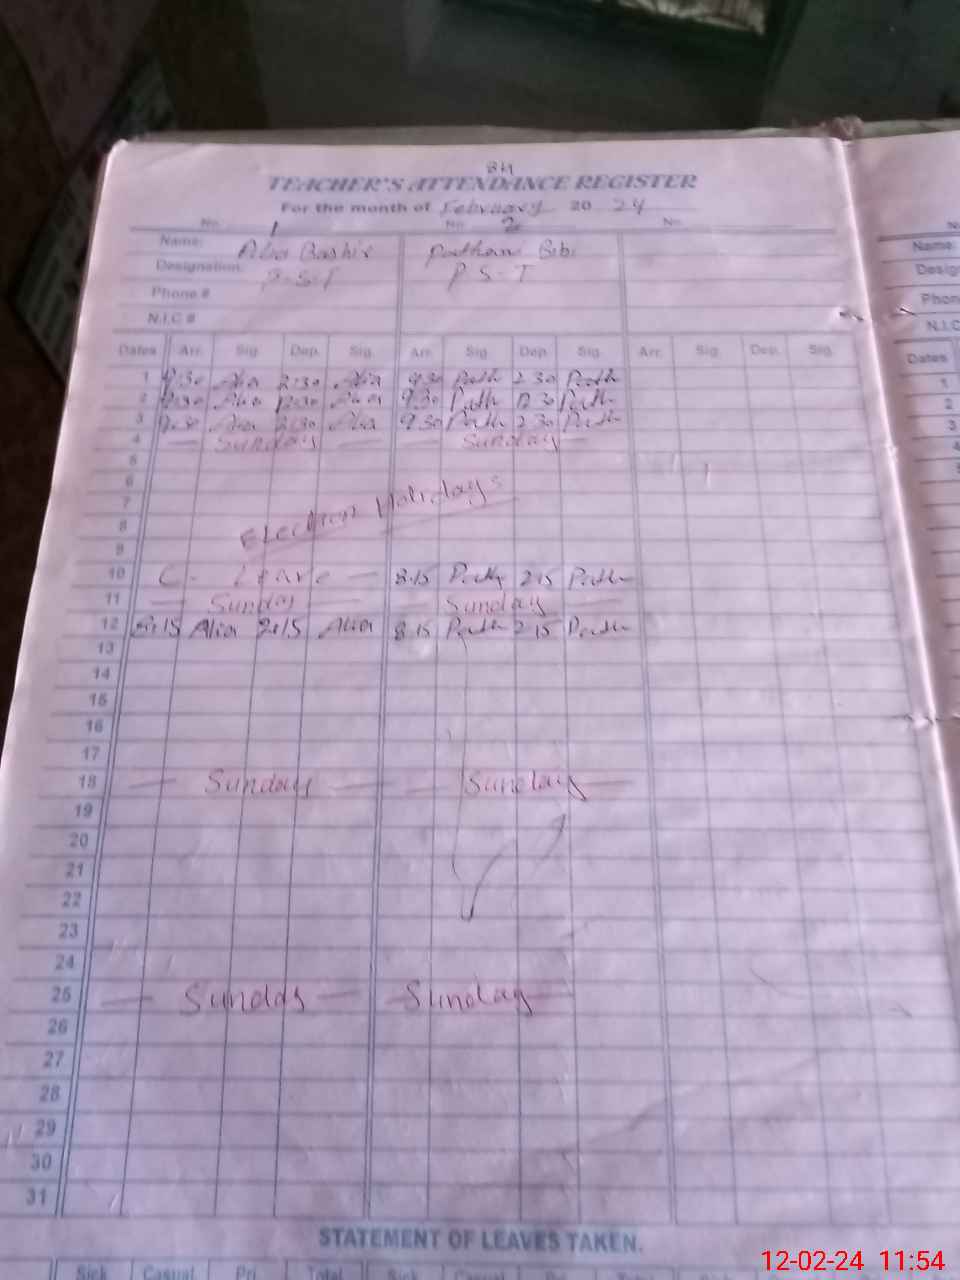 84
TEACHER'S ATTENDANCE REGISTER
For the month of February 20 24
No. 1 No. 2 No.
Name: Alia Bashir Pathani Bibi Name:
Designation: P-S-T P S-T
Phone #
N.I.C #
Dates Arr. Sig. Dep. Sig. Arr. Sig. Dep. Sig. Arr. Sig. Dep. Sig. Dates
1 9:30 Alia 2:30 Alia 9:30 Path 2 30 Path 1
2 9:30 Alia 12:30 Alia 9:30 Path 12 30 Path 2
3 9:30 Alia 2:30 Alia 9:30 Path 2 30 Path 3
4 — Sunday — Sunday — 4
5
6
7 Election Holidays
8
9
10 C. Leave — 8.15 Path 2 15 Path
11 — Sunday — — Sunday —
12 8:15 Alia 2:15 Alia 8 15 Path 2 15 Path
13
14
15
16
17
18 — Sunday — — Sunday —
19
20
21
22
23
24
25 — Sunday — — Sunday —
26
27
28
29
30
31
STATEMENT OF LEAVES TAKEN.
Sick Casual Pri. Total Sick Casual
12-02-24 11:54